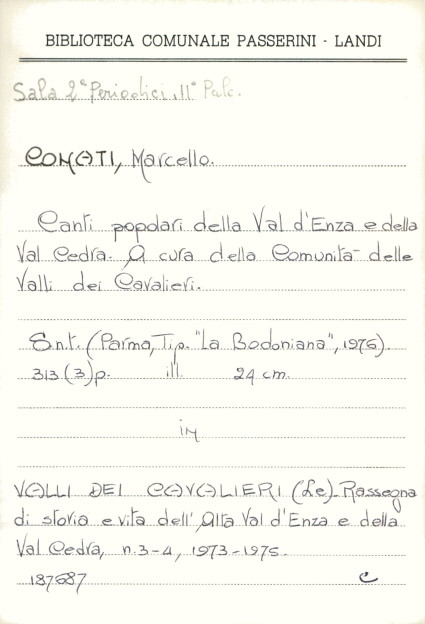 BIBLIOTECA COMUNALE PASSERINI - LANDI
Sala 2ª Periodici. II° Palc.
CONATI, Marcello.
Canti popolari della Val d'Enza e della
Val Cedra. A cura della Comunità delle
Valli dei Cavalieri.
S.n.t. (Parma, Tip. "La Bodoniana", 1976).
313 (3) p. ill. 24 cm.
in
VALLI DEI CAVALIERI (Le). Rassegna
di storia e vita dell'Alta Val d'Enza e della
Val Cedra, n. 3-4, 1973-1975.
187687 C